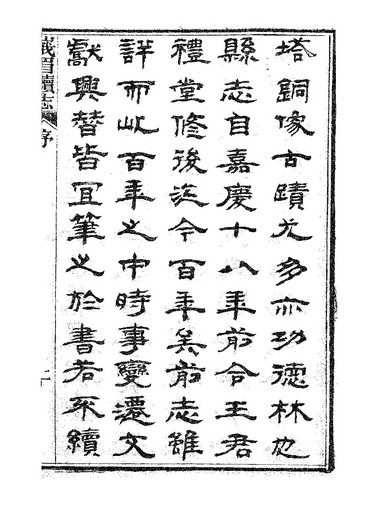 塔銅像古蹟尤多亦功德林也
縣志自嘉慶十八年前令王君
禮堂修後迄今百年矣前志雖
詳而此百年之中時事變遷文
獻興替皆宜筆之於書若不續
峩眉續志
序